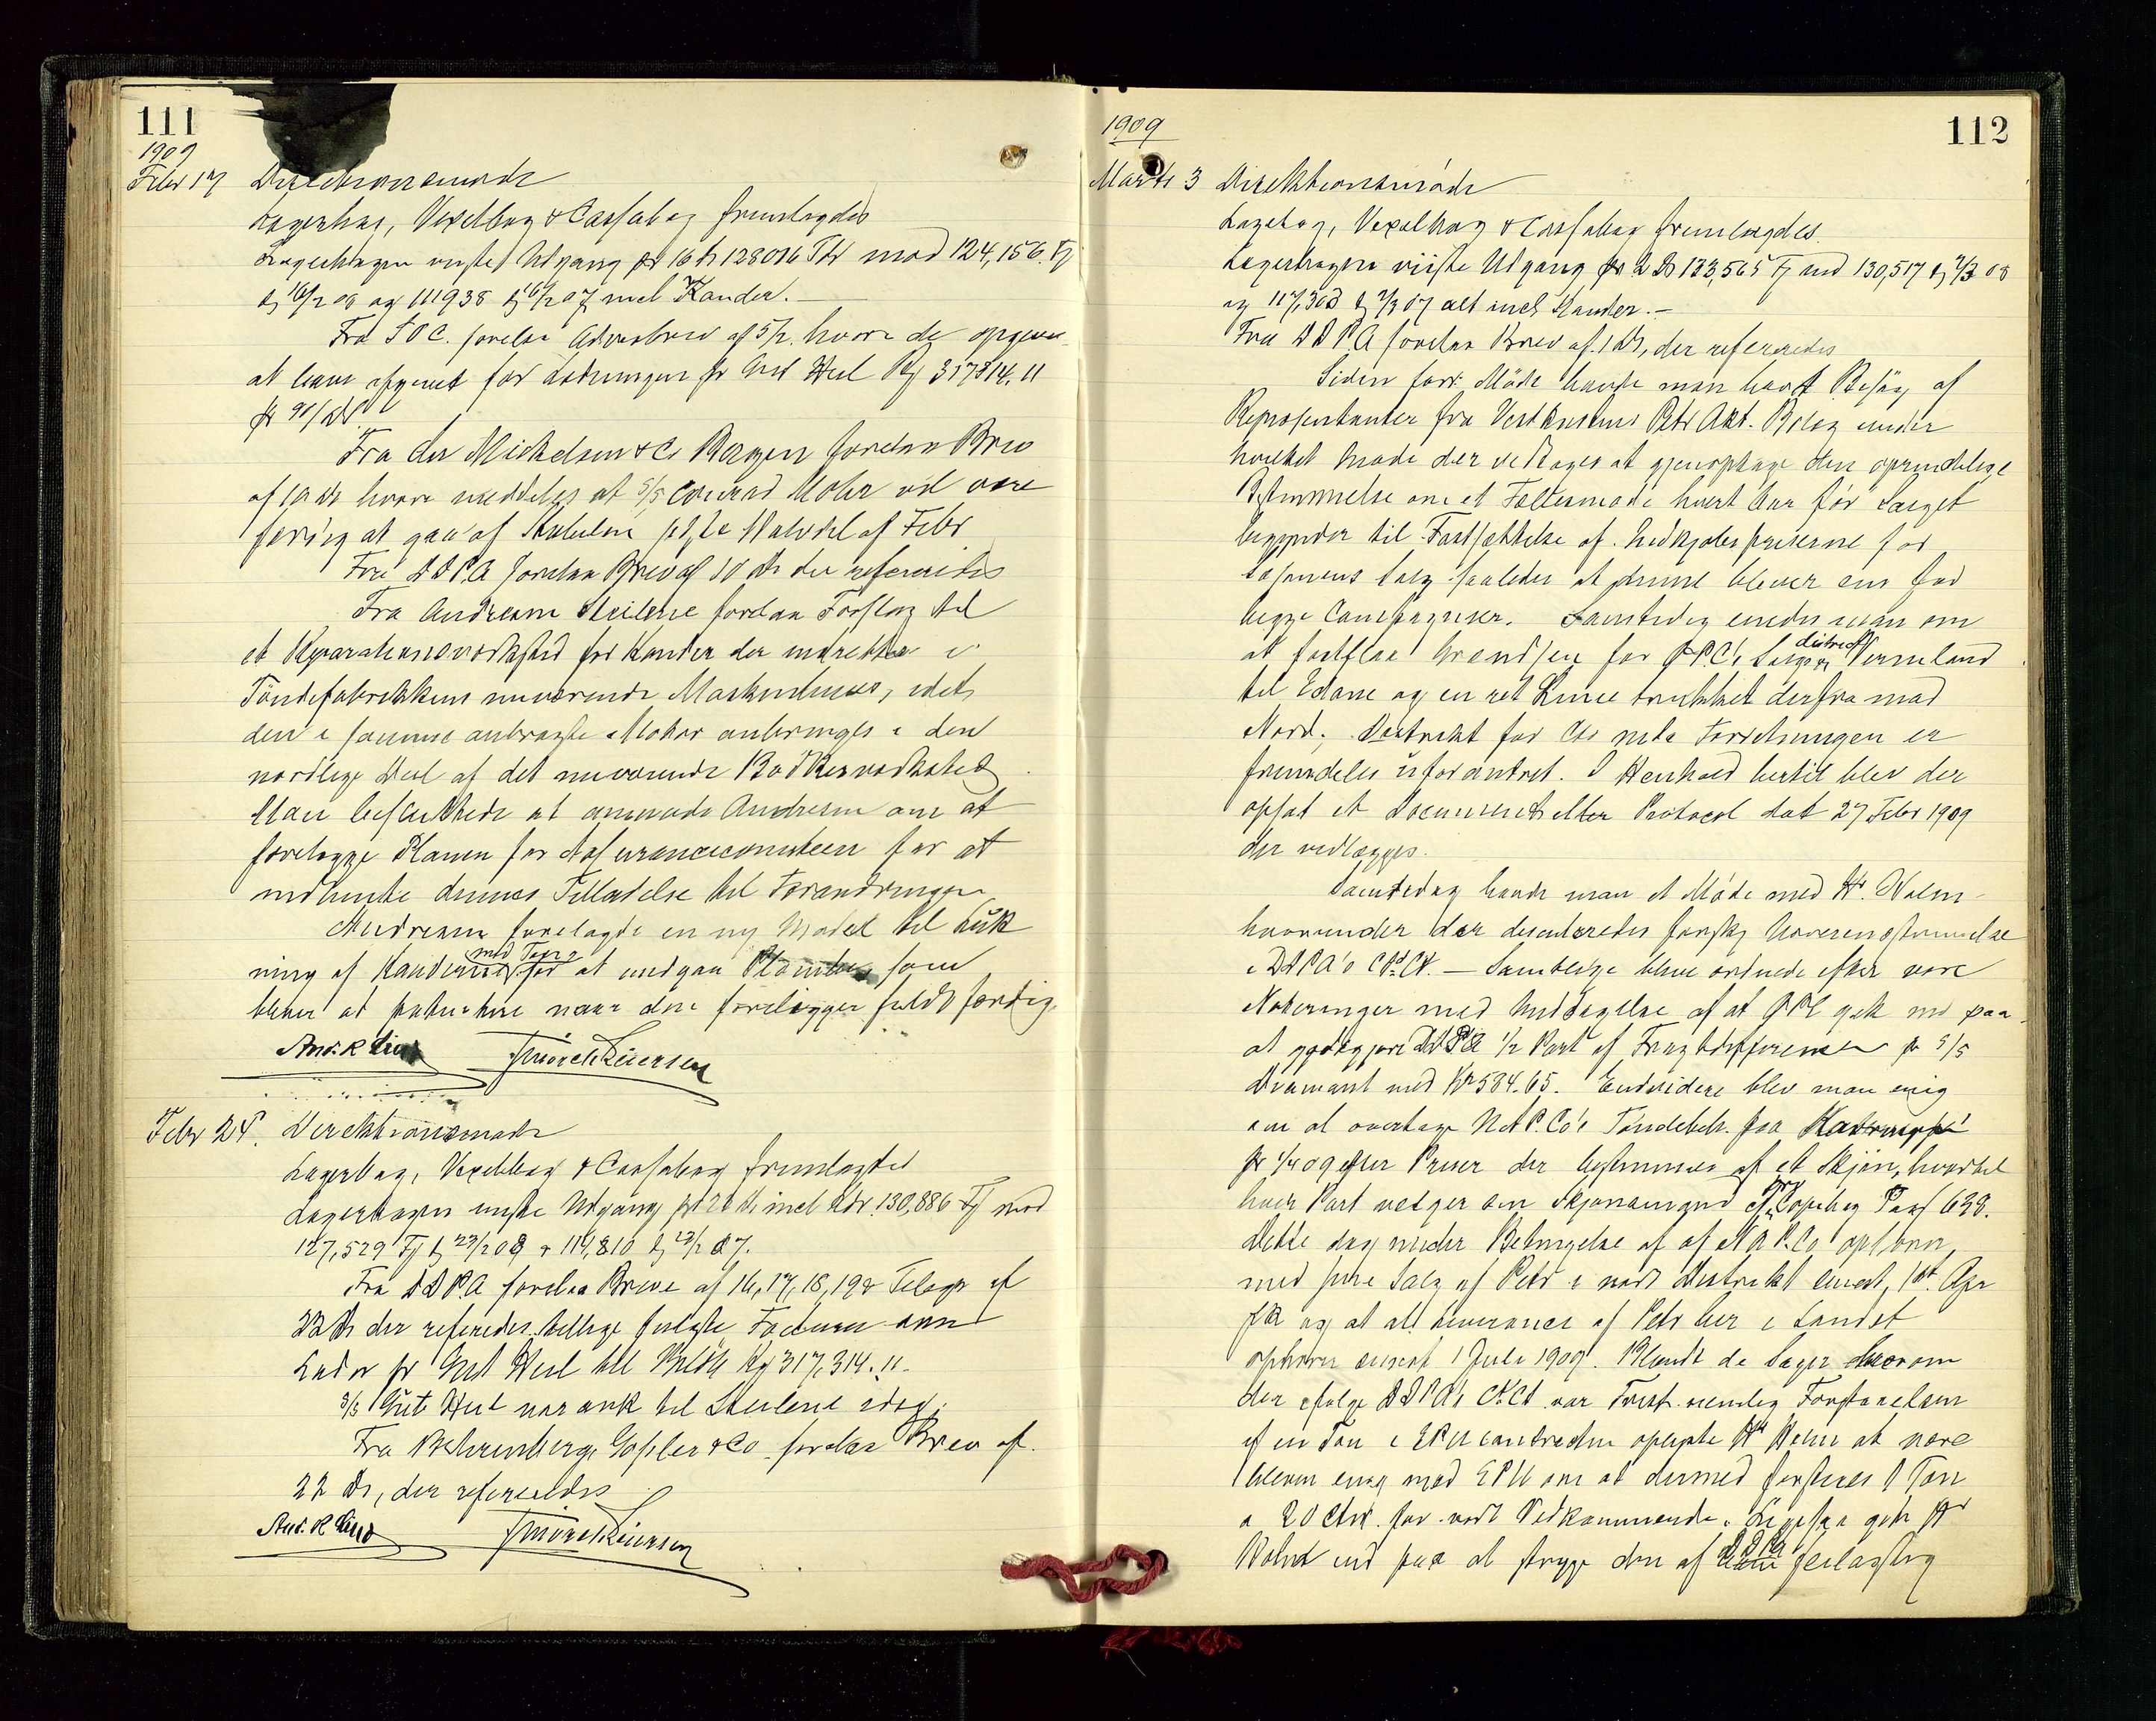 111
1909
Febr 17 Direktionsmøde
Lagerbog, Vexelbog & Cassabog fremlagdes
Lagerbogen viste Udgang pr 16 ds 128016 Fde mod 124,156 Fj
pr 16/2 08 og 111938 pr 16/2 07 incl Kander.
Fra S.O.C. forelaa Advisbrev af 5/2 hvori de opgiver
at have afsendt for Ladningen pr Gut Heil Rg 317314.11
Fra Mickelsen & Co Bergen forelaa Brev
af 10 ds hvori meddeles at S/S Conrad Mohr vil være
færdig at gaa af Stabelen sidste Halvdel af Febr
Fra DDPA forelaa Brev af 10 ds der refereredes
Fra Andresen Steilene forelaa Forslag til
et Reparationsværksted for Kander der indrettes i
Tøndefabrikkens nuværende Maskinhus, idet
den i samme anbragte Motor anbringes i den
nordlige Deel af det nuværende Bødkerværksted
Man besluttede at anmode Andresen om at
forelægge Planen for Assurancecomiteen for at
indhente dennes Tilladelse til Forandringen
Andresen forelagde en ny Model til Luk
ning af Kanderne med Tapp for at undgaa Plomber som
bliver at patentere naar den foreligger fuldt færdig.
And. R Lind
Febr 24. Direktionsmøde
Lagerbog, Vexelbog & Cassabog fremlagdes
Lagerbogen viste Udgang pr 23 ds incl Kdr. 130,886 Fj mod
127,529 Fj pr 23/2 08 & 119,810 pr 23/2 07.
Fra DDPA forelaa Breve af 16, 17, 18, 19 & Telegr af
22 ds der refereredes. Tillige fulgte Factura over
Ladn pr Gut Heil til Beløb Rg 317,314.11.
S/S Gut Heil var ank til Steilene idag.
Fra Behrenberg, Gossler & Co forelaa Brev af
22 ds, der refereredes
And. R Lind
112
1909
Marts 3 Direktionsmøde
Lagerbog, Vexelbog & Cassabog fremlagdes.
Lagerbogen viste Udgang pr 2 ds 133,565 Fj mod 130,517 pr 2/3 08
og 117,303 pr 2/3 07 alt incl Kander.
Fra DDPA forelaa Brev af 1 ds, der refereredes
Siden forr. Møde havde man havt Besøg af
Repræsentanter fra Vestkustens Petr Akt. Bolag under
hvilket Møde der vedtoges at gjenoptage den oprindelige
Bestemmelse om et Fællesmøde hvert Aar før Salget
begynder til Fastsættelse af Indkjøbspriserne for
Sæsonens Salg saaledes at denne bliver ens for
begge Compagnier. Samtidig enedes man om
at fastslaa Grændsen for ØPC's Salgs distrect Vermland
til Edane og en ret Linie trukket derfra mod
Nord. Distrikt for Forretningen er
fremdeles uforandret. I Henhold hertil blev der
opsat et Document eller Protocol dat 27 Febr 1909
der vedlægges.
Samtidig havde man et Møde med Hr. Holm
hvorunder der discuteredes forskj Uoverensstemmelse
i DDPA's Ct Ct. — Samtlige bleve ordnede efter vore
Noteringer med Undtagelse af at ØPC gik ind paa
at godtgjøre DDPA 1/2 Part af Fragtdifferensen pr S/S
Diamant med Kr 584.65. Endvidere blev man enig
om at overtage N.A.P.Co's Tøndebeh. paa
pr 1/4 09 efter Priser der bestemmes af et Skjøn, hvortil
hver Part vælger en Skjønsmand cfr Copibog Pag 638.
Dette dog under Betingelse af at N.A.P.Co ophører
med sine Salg af Petr i vort Distrikt senest 1st Apr
og at al Leverance af Petr her i Landet
ophører senest 1 Juli 1909. Blandt de Sager hvorom
der ifølge DDPA's Ct Ct var Tvist nemlig Forstaaelsen
af en Ton i EPU contracten oplyste Hr Holm at være
bleven enig med EPU om at dermed forstaaes 1 Ton
a 20 Ctr. for vort Vedkommende. Ligesaa gik Hr
Holm ind paa at stryge den af DDPA feilagtig